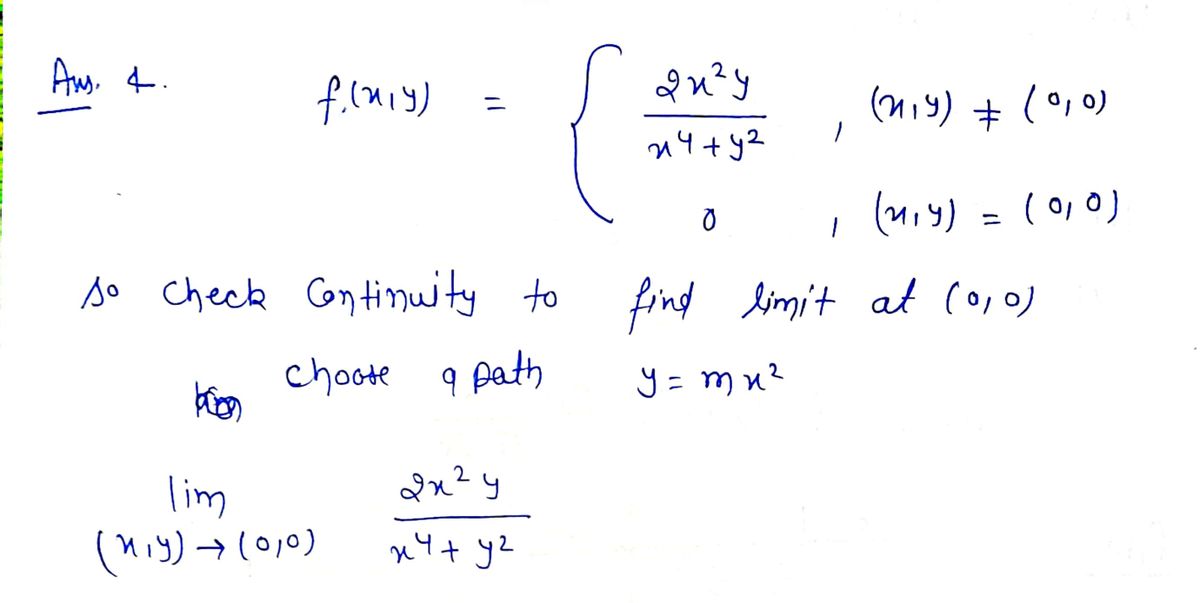 Ans. 4.
f(x,y) = { 2x²y / x⁴+y² , (x,y) ≠ (0,0)
0 , (x,y) = (0,0)
so check Continuity to find limit at (0,0)
choose a path y = mx²
lim (x,y) → (0,0) 2x²y / x⁴+y²